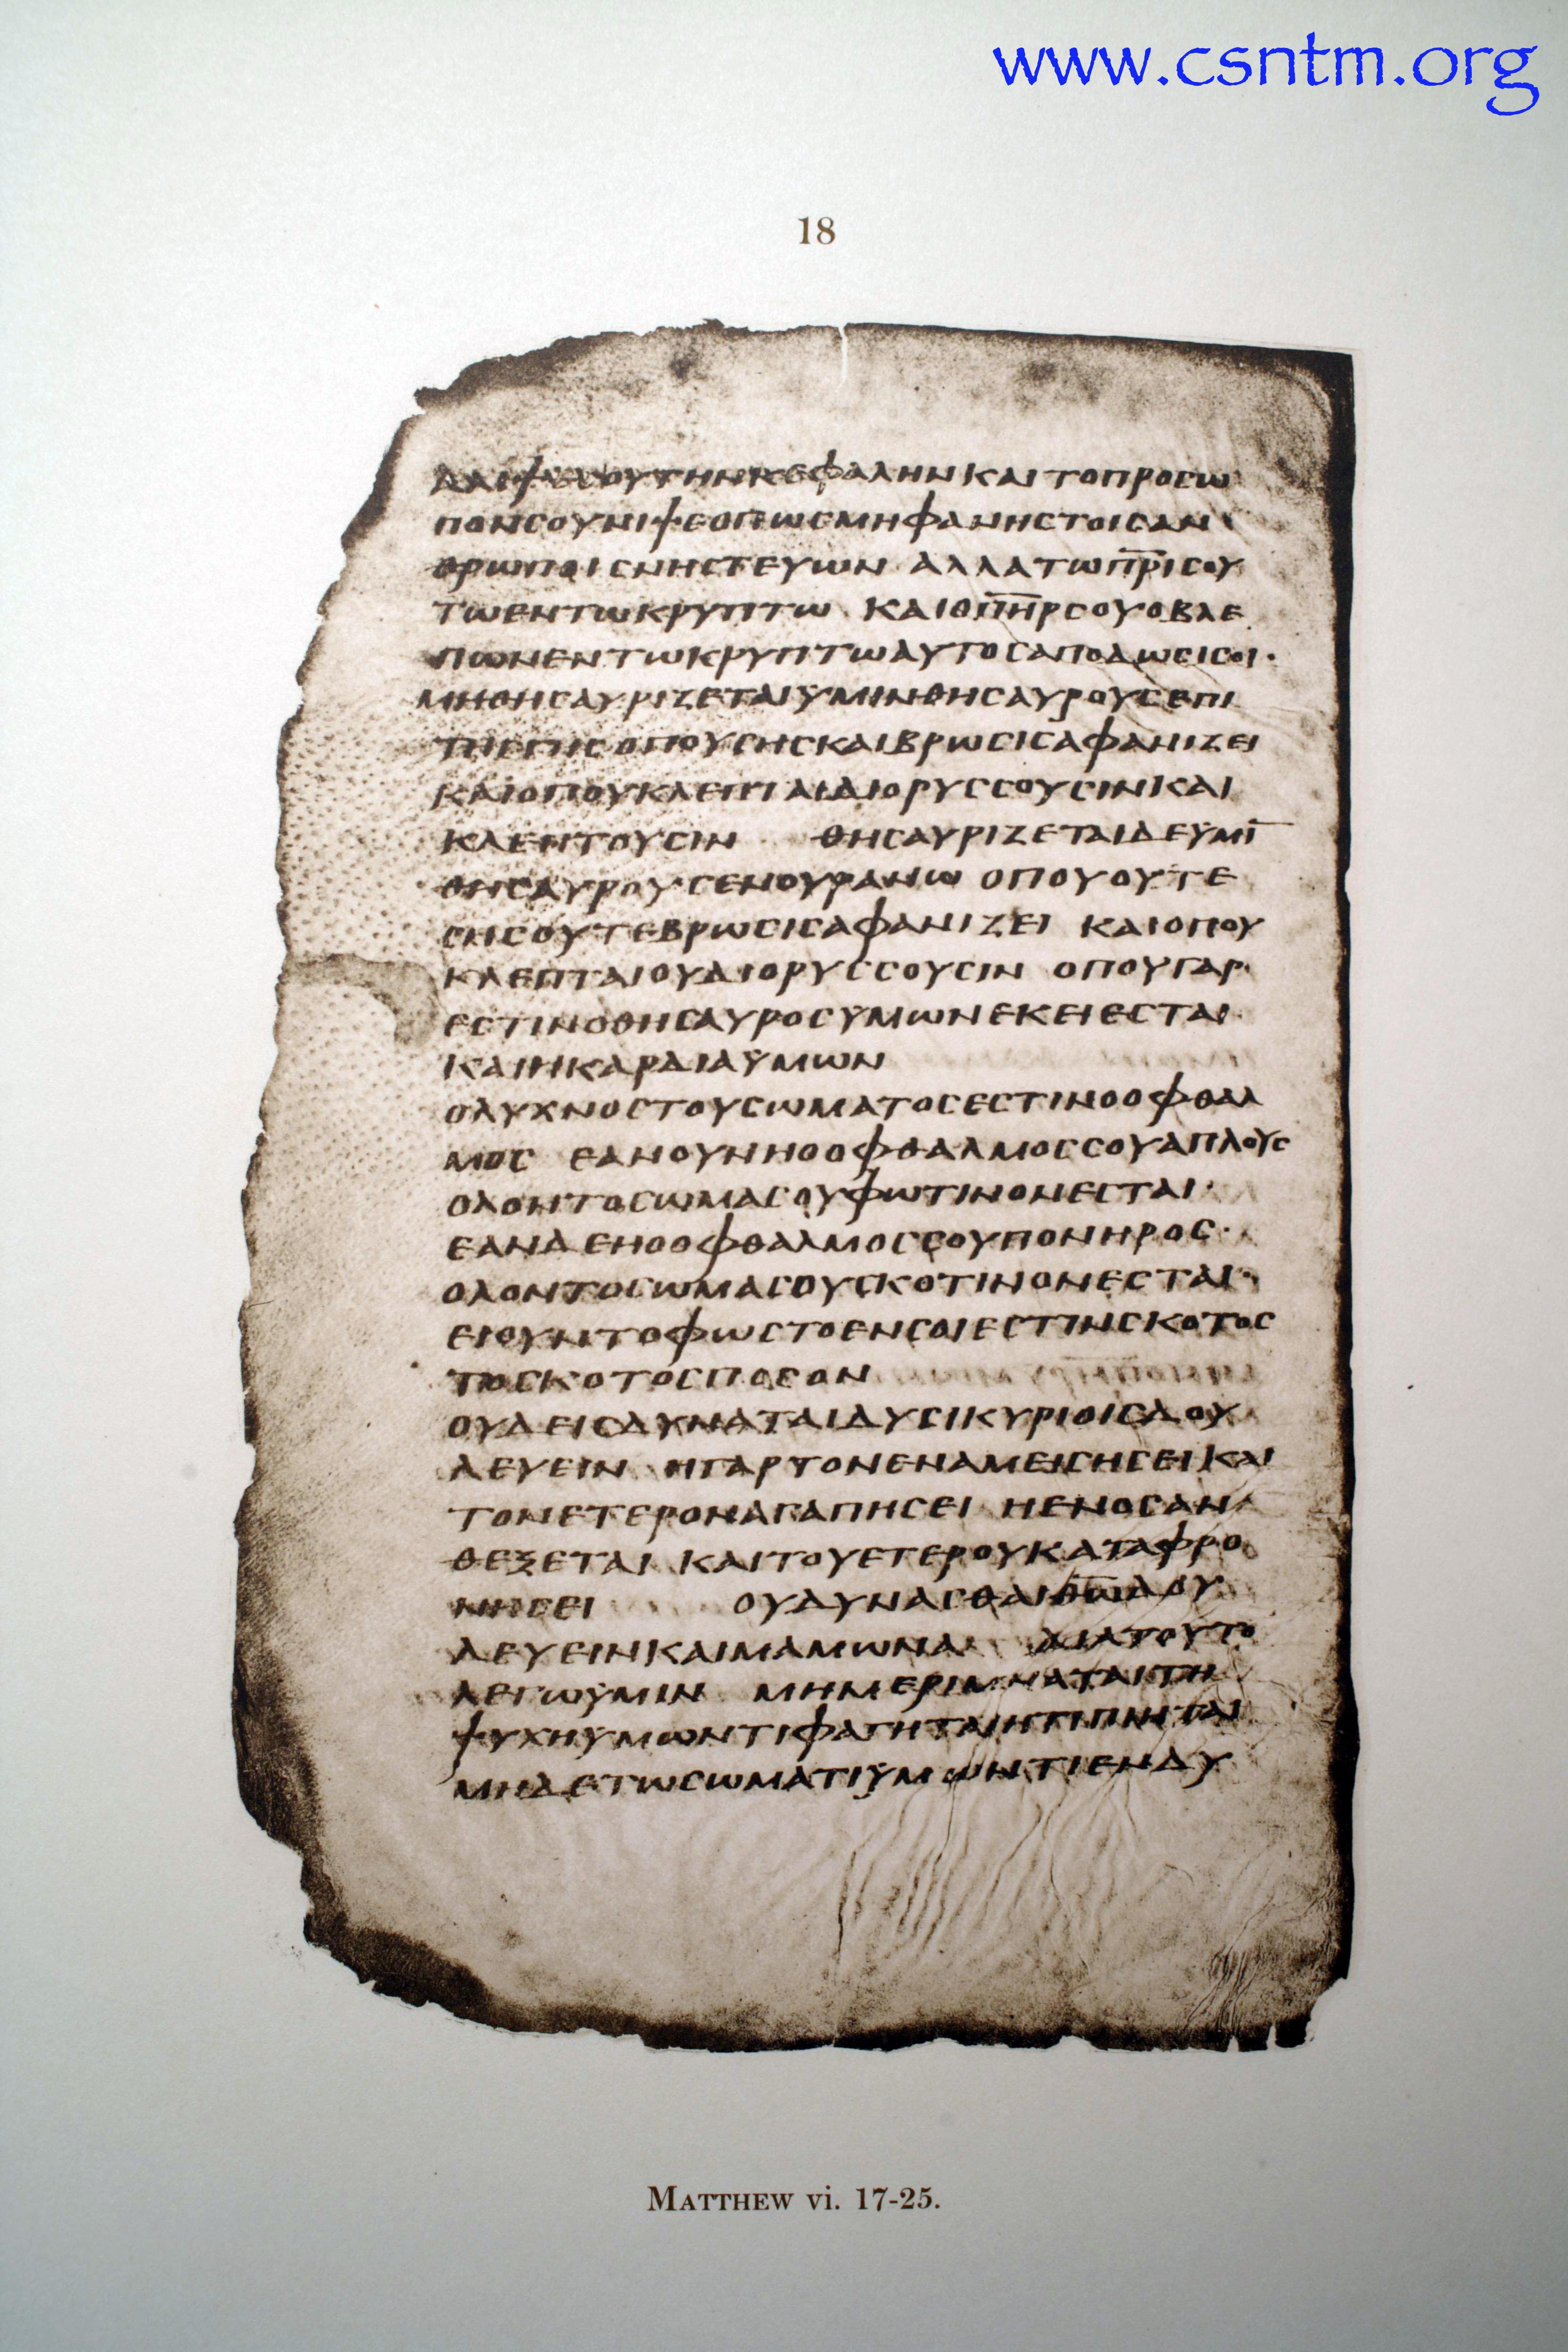 www.csntm.org
18
ΑΛΙΨΑΙΣΟΥΤΗΝΚΕΦΑΛΗΝΚΑΙΤΟΠΡΟϹΩ
ΠΟΝϹΟΥΝΙΨΕΟΠΩϹΜΗΦΑΝΗϹΤΟΙϹΑΝ
ΘΡΩΠΟΙϹΝΗϹΤΕΥΩΝ ΑΛΛΑΤΩΠ̅Ρ̅Ι̅ϹΟΥ
ΤΩΕΝΤΩΚΡΥΠΤΩ ΚΑΙΟΠ̅Η̅Ρ̅ϹΟΥΟΒΛΕ
ΠΩΝΕΝΤΩΚΡΥΠΤΩΑΥΤΟϹΑΠΟΔΩϹΙϹΟΙ·
ΜΗΘΗϹΑΥΡΙΖΕΤΑΙΫΜΙΝΘΗϹΑΥΡΟΥϹΕΠΙ
ΤΗϹΓΗϹΟΠΟΥϹΗϹΚΑΙΒΡΩϹΙϹΑΦΑΝΙΖΕΙ
ΚΑΙΟΠΟΥΚΛΕΠΤΑΙΔΙΟΡΥϹϹΟΥϹΙΝΚΑΙ
ΚΛΕΠΤΟΥϹΙΝ ΘΗϹΑΥΡΙΖΕΤΑΙΔΕΥΜΙ̅
ΘΗϹΑΥΡΟΥϹΕΝΟΥΡΑΝΩ ΟΠΟΥΟΥΤΕ
ϹΗϹΟΥΤΕΒΡΩϹΙϹΑΦΑΝΙΖΕΙ ΚΑΙΟΠΟΥ
ΚΛΕΠΤΑΙΟΥΔΙΟΡΥϹϹΟΥϹΙΝ ΟΠΟΥΓΑΡ
ΕϹΤΙΝΟΘΗϹΑΥΡΟϹΥΜΩΝΕΚΕΙΕϹΤΑΙ
ΚΑΙΗΚΑΡΔΙΑΫΜΩΝ
ΟΛΥΧΝΟϹΤΟΥϹΩΜΑΤΟϹΕϹΤΙΝΟΟΦΘΑΛ
ΜΟϹ ΕΑΝΟΥΝΗΟΟΦΘΑΛΜΟϹϹΟΥΑΠΛΟΥϹ
ΟΛΟΝΤΟϹΩΜΑϹΟΥΦΩΤΙΝΟΝΕϹΤΑΙ·
ΕΑΝΔΕΗΟΟΦΘΑΛΜΟϹϹΟΥΠΟΝΗΡΟϹ·
ΟΛΟΝΤΟϹΩΜΑϹΟΥϹΚΟΤΙΝΟΝΕϹΤΑΙ·
ΕΙΟΥΝΤΟΦΩϹΤΟΕΝϹΟΙΕϹΤΙΝϹΚΟΤΟϹ
ΤΟϹΚΟΤΟϹΠΟϹΟΝ
ΟΥΔΕΙϹΔΥΝΑΤΑΙΔΥϹΙΚΥΡΙΟΙϹΔΟΥ
ΛΕΥΕΙΝ ΗΓΑΡΤΟΝΕΝΑΜΕΙϹΗϹΕΙΚΑΙ
ΤΟΝΕΤΕΡΟΝΑΓΑΠΗϹΕΙ ΗΕΝΟϹΑΝ
ΘΕΞΕΤΑΙ ΚΑΙΤΟΥΕΤΕΡΟΥΚΑΤΑΦΡΟ
ΝΗϹΕΙ ΟΥΔΥΝΑϹΘΑΙΘ̅Ω̅ΔΟΥ
ΛΕΥΕΙΝΚΑΙΜΑΜΩΝΑ ΔΙΑΤΟΥΤΟ
ΛΕΓΩΫΜΙΝ ΜΗΜΕΡΙΜΝΑΤΑΙΤΗ
ΨΥΧΗΥΜΩΝΤΙΦΑΓΗΤΑΙΗΤΙΠΙΗΤΑΙ
ΜΗΔΕΤΩϹΩΜΑΤΙΫΜΩΝΤΙΕΝΔΥ
MATTHEW vi. 17-25.